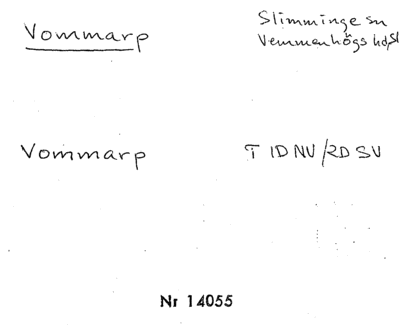 Vommarp
Slimminge sn
Vemmenhögs hd, Sk
Vommarp
T 1D NV/2D SV
Nr 14055